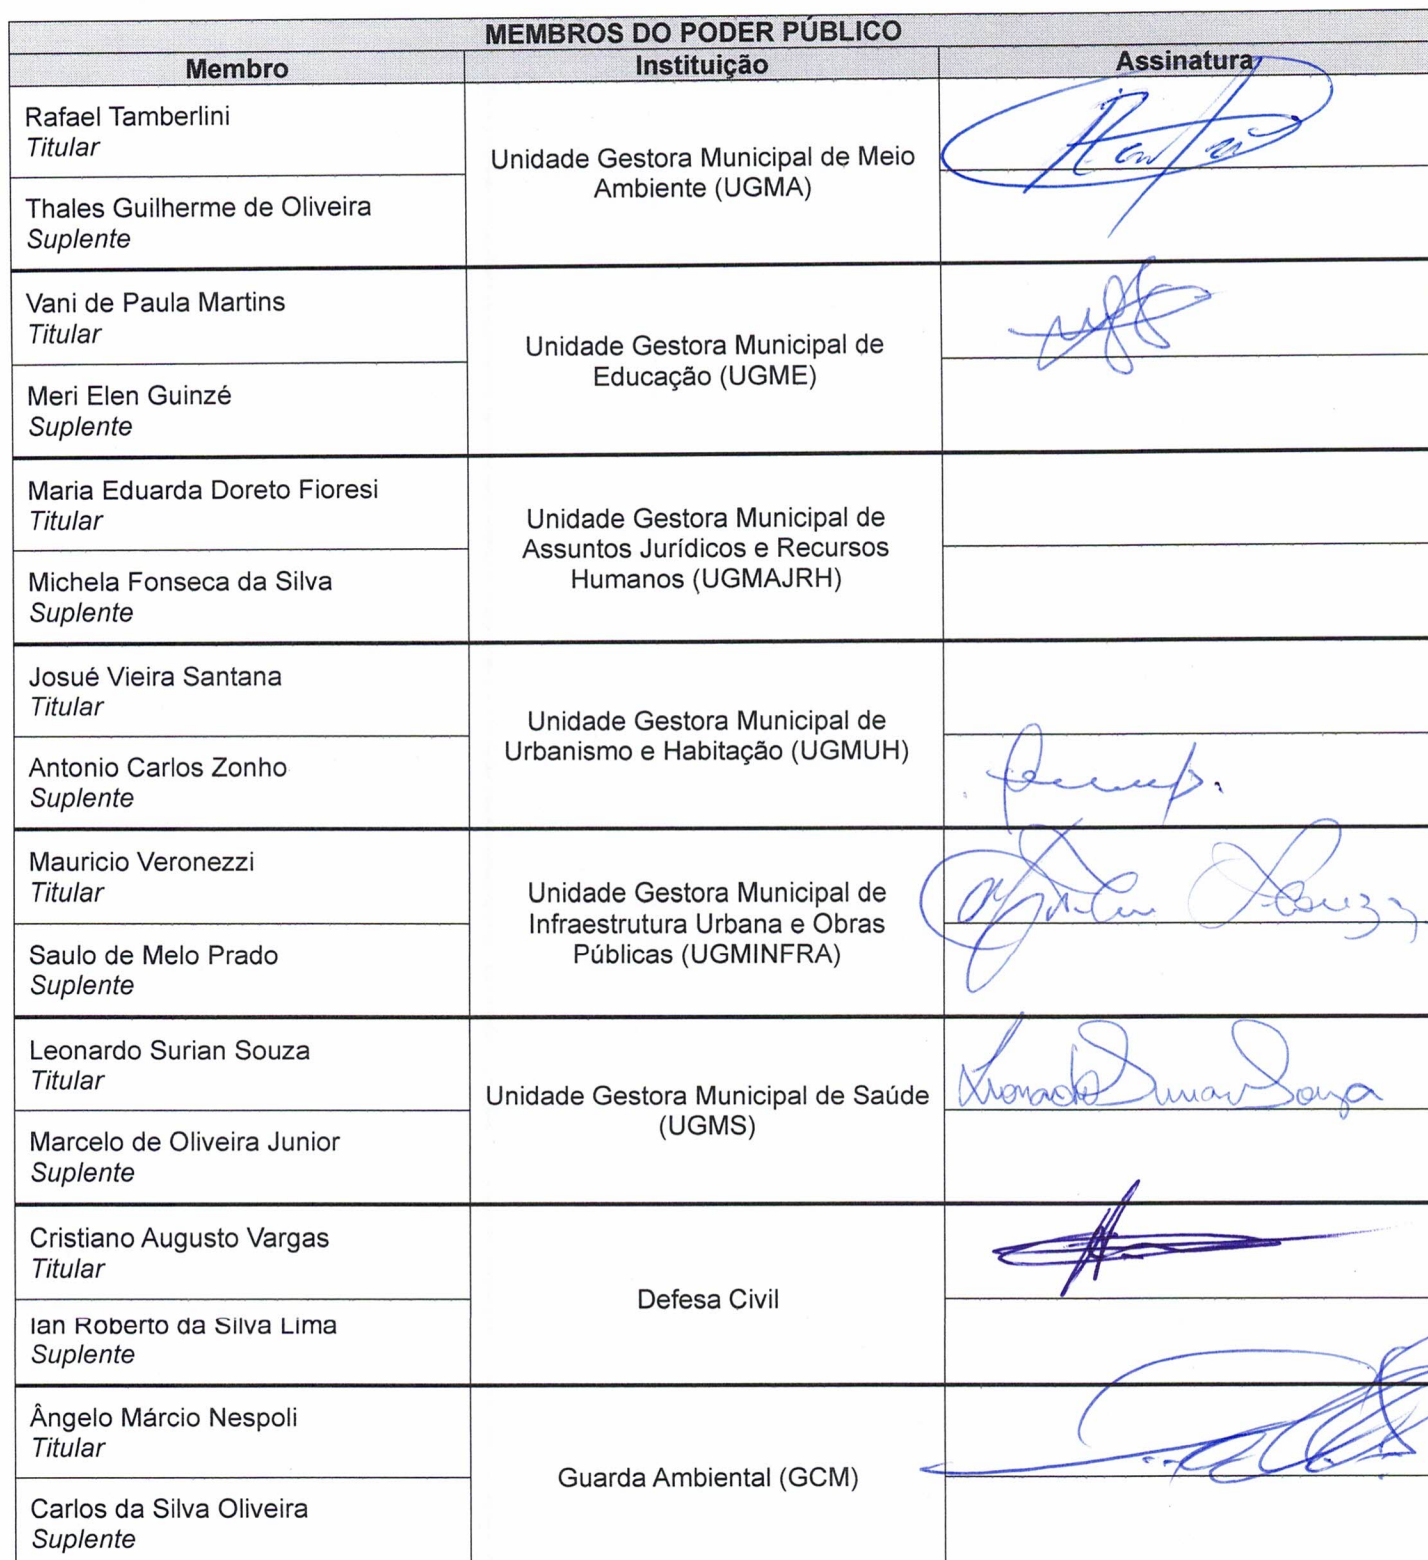 MEMBROS DO PODER PÚBLICO
Membro Instituição Assinatura
Rafael Tamberlini
Titular
Unidade Gestora Municipal de Meio
Ambiente (UGMA)
Thales Guilherme de Oliveira
Suplente
Vani de Paula Martins
Titular
Unidade Gestora Municipal de
Educação (UGME)
Meri Elen Guinzé
Suplente
Maria Eduarda Doreto Fioresi
Titular
Unidade Gestora Municipal de
Assuntos Jurídicos e Recursos
Humanos (UGMAJRH)
Michela Fonseca da Silva
Suplente
Josué Vieira Santana
Titular
Unidade Gestora Municipal de
Urbanismo e Habitação (UGMUH)
Antonio Carlos Zonho
Suplente
Mauricio Veronezzi
Titular
Unidade Gestora Municipal de
Infraestrutura Urbana e Obras
Públicas (UGMINFRA)
Saulo de Melo Prado
Suplente
Leonardo Surian Souza
Titular
Unidade Gestora Municipal de Saúde
(UGMS)
Leonardo Surian Souza
Marcelo de Oliveira Junior
Suplente
Cristiano Augusto Vargas
Titular
Defesa Civil
Ian Roberto da Silva Lima
Suplente
Ângelo Márcio Nespoli
Titular
Guarda Ambiental (GCM)
Carlos da Silva Oliveira
Suplente